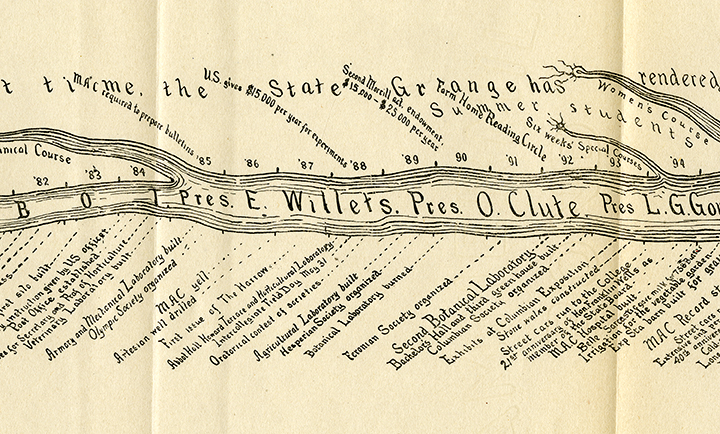 t time, the State Grange has rendered
MAC
required to prepare bulletins
U.S. gives $15,000 per year for experiments
Second Morrill act, endowment
$15,000 – $25,000 per year
Farm Home Reading Circle
Summer students
Women's Course
Six weeks' Special Courses
anical Course
'82 '83 '84 '85 '86 '87 '88 '89 90 '91 '92 '93 94
B O T. Pres. E. Willets. Pres. O. Clute. Pres L.G. Gor
silo built
Post Office established
Secretary and Prof of Horticulture
Veterinary Laboratory built
Armory and Mechanical Laboratory built
Olympic Society organized
Artesian well drilled
MAC yell
First issue of The Harrow
Abbot Hall, Howard Terrace and Horticultural Laboratory
Intercollegiate Field Day, May 31
Oratorical contest of societies
Agricultural Laboratory built
Hesperian Society organized
Botanical Laboratory burned
Feronian Society organized
Second Botanical Laboratory
Bachelors' Hall and third green house built
Columbian Society organized
Exhibits at Columbian Exposition
Stone walks constructed
Street cars run to the College
21st anniversary of Hon Franklin Wells as
member of the State Board
M.A.C. Hospital built
Irrigation for the vegetable garden
Exp Sta barn built for
MAC Record
Street cars
Extensive
40th